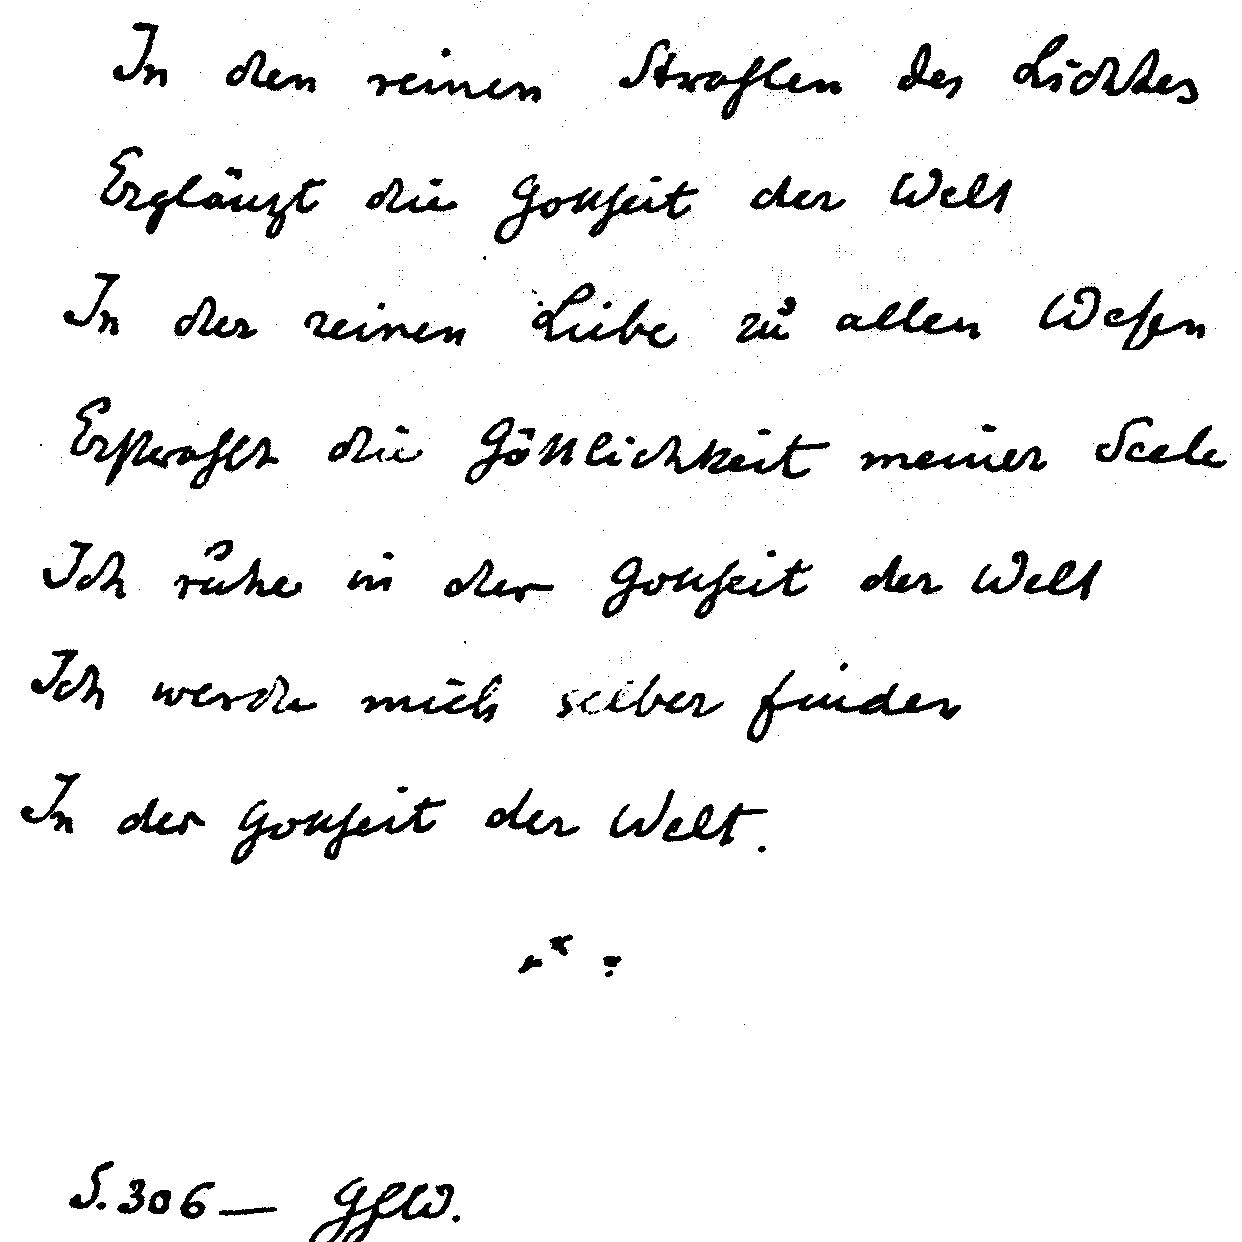 In den reinen Strahlen des Lichtes
Erglänzt die Gottheit der Welt
In der reinen Liebe zu allen Wesen
Erstrahlt die Göttlichkeit meiner Seele
Ich ruhe in der Gottheit der Welt
Ich werde mich selber finden
In der Gottheit der Welt.
S. 306 —